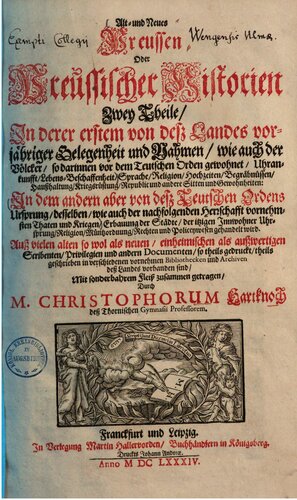 Alt- und Neues
Preussen
Oder
Preussischer Historien
Zwey Theile/
In derer erstem von deß Landes vor-
jähriger Gelegenheit und Nahmen/ wie auch der
Völcker/ so darinnen vor dem Teutschen Orden gewohnet/ Uhran-
kunfft/ Lebens-Beschaffenheit/ Sprache/ Religion/ Hochzeiten/ Begräbnüssen/
Haußhaltung/ Kriegsrüstung/ Republic und andere Sitten und Gewohnheiten:
In dem andern aber von deß Teutschen Ordens
Ursprung/ desselben/ wie auch der nachfolgenden Herrschafft vornehm-
sten Thaten und Kriegen/ Erbauung der Städte/ der itzigen Innwohner Uhr-
sprung/ Religion/ Müntzordnung/ Rechten und Policeywesen gehandelt wird.
Auß vielen alten so wol als neuen/ einheimischen als außwertigen
Scribenten/ Privilegien und andern Documenten/ so theils gedruckt/ theils
geschrieben in verschiedenen vornehmen Bibliothecken und Archiven
deß Landes vorhanden sind/
Mit sonderbahrem Fleiß zusammen getragen/
Durch
M. CHRISTOPHORUM Hartknoch
deß Thornischen Gymnasii Professorem.
Franckfurt und Leipzig.
In Verlegung Martin Hallervorden/ Buchhändlern in Königsberg.
Druckts Johann Andreæ.
Anno M DC LXXXIV.